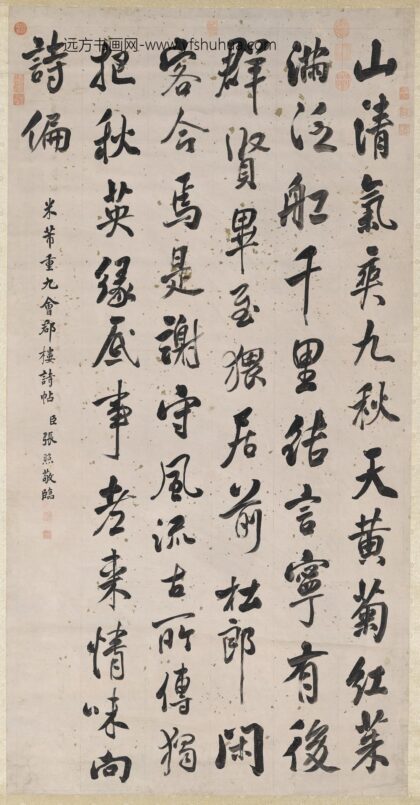 远方书画网-www.yfshuhua.com
山清氣爽九秋天黄菊紅茱
滿泛船千里結言寧有後
群賢畢至猥居前杜郎閑
客今焉是謝守風流古所傳獨
把秋英緣底事老来情味向
詩偏
米芾重九會郡樓詩帖 臣張照敬臨